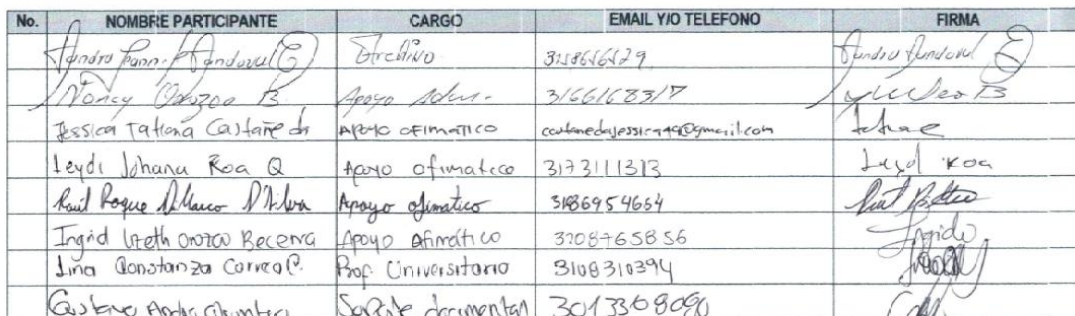 No. NOMBRE PARTICIPANTE CARGO EMAIL Y/O TELEFONO FIRMA
Sandra Sandoval 3158616129 Sandra Sandoval
Nancy Orozco B. Apoyo 3166168317
Jessica Tatiana Castañeda APOYO OFIMATICO castanedajessica99@gmail.com
Leydi Johana Roa Q Apoyo ofimatico 3173111313 Leydi Roa
Raúl Roque Apoyo ofimatico 3186954654
Ingrid Lizeth Orozco Becerra Apoyo Ofimático 3208765856 Ingrid
Lina Constanza Correa C. Prof. Universitario 3108310394
Gustavo Soporte documental 3013368090